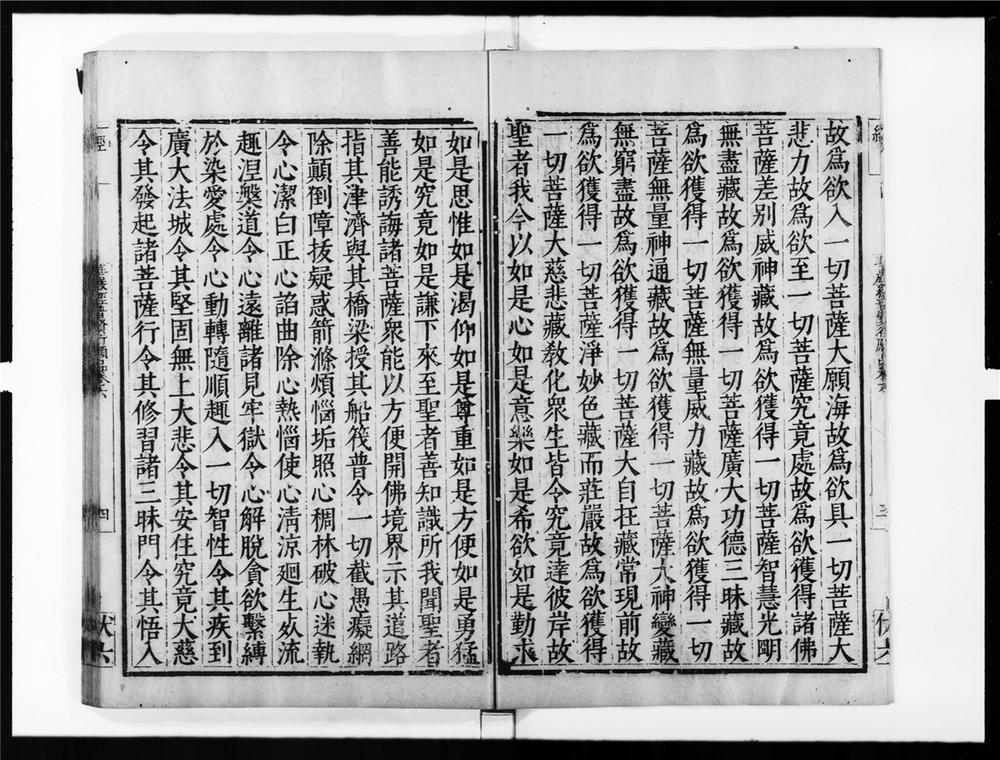 故爲欲入一切菩薩大願海故爲欲具一切菩薩大
悲力故爲欲至一切菩薩究竟處故爲欲獲得諸佛
菩薩差別威神藏故爲欲獲得一切菩薩智慧光明
無盡藏故爲欲獲得一切菩薩廣大功德三昧藏故
爲欲獲得一切菩薩無量威力藏故爲欲獲得一切
菩薩無量神通藏故爲欲獲得一切菩薩大神變藏
無窮盡故爲欲獲得一切菩薩大自在藏常現前故
爲欲獲得一切菩薩淨妙色藏而莊嚴故爲欲獲得
一切菩薩大慈悲藏敎化衆生皆令究竟達彼岸故
聖者我今以如是心如是意樂如是希欲如是勤求
如是思惟如是渴仰如是尊重如是方便如是勇猛
如是究竟如是謙下來至聖者善知識所我聞聖者
善能誘誨諸菩薩衆能以方便開佛境界示其道路
指其津濟與其橋梁授其船筏普令一切截愚癡網
除顚倒障拔疑惑箭滌煩惱垢照心稠林破心迷執
令心潔白正心諂曲除心熱惱使心淸涼廻生死流
趣涅槃道令心遠離諸見牢獄令心解脫貪欲繫縛
於染愛處令心動轉隨順趣入一切智性令其疾到
廣大法城令其堅固無上大悲令其安住究竟大慈
令其發起諸菩薩行令其修習諸三昧門令其悟入
經
華嚴經普賢行願品卷六
四
伏六